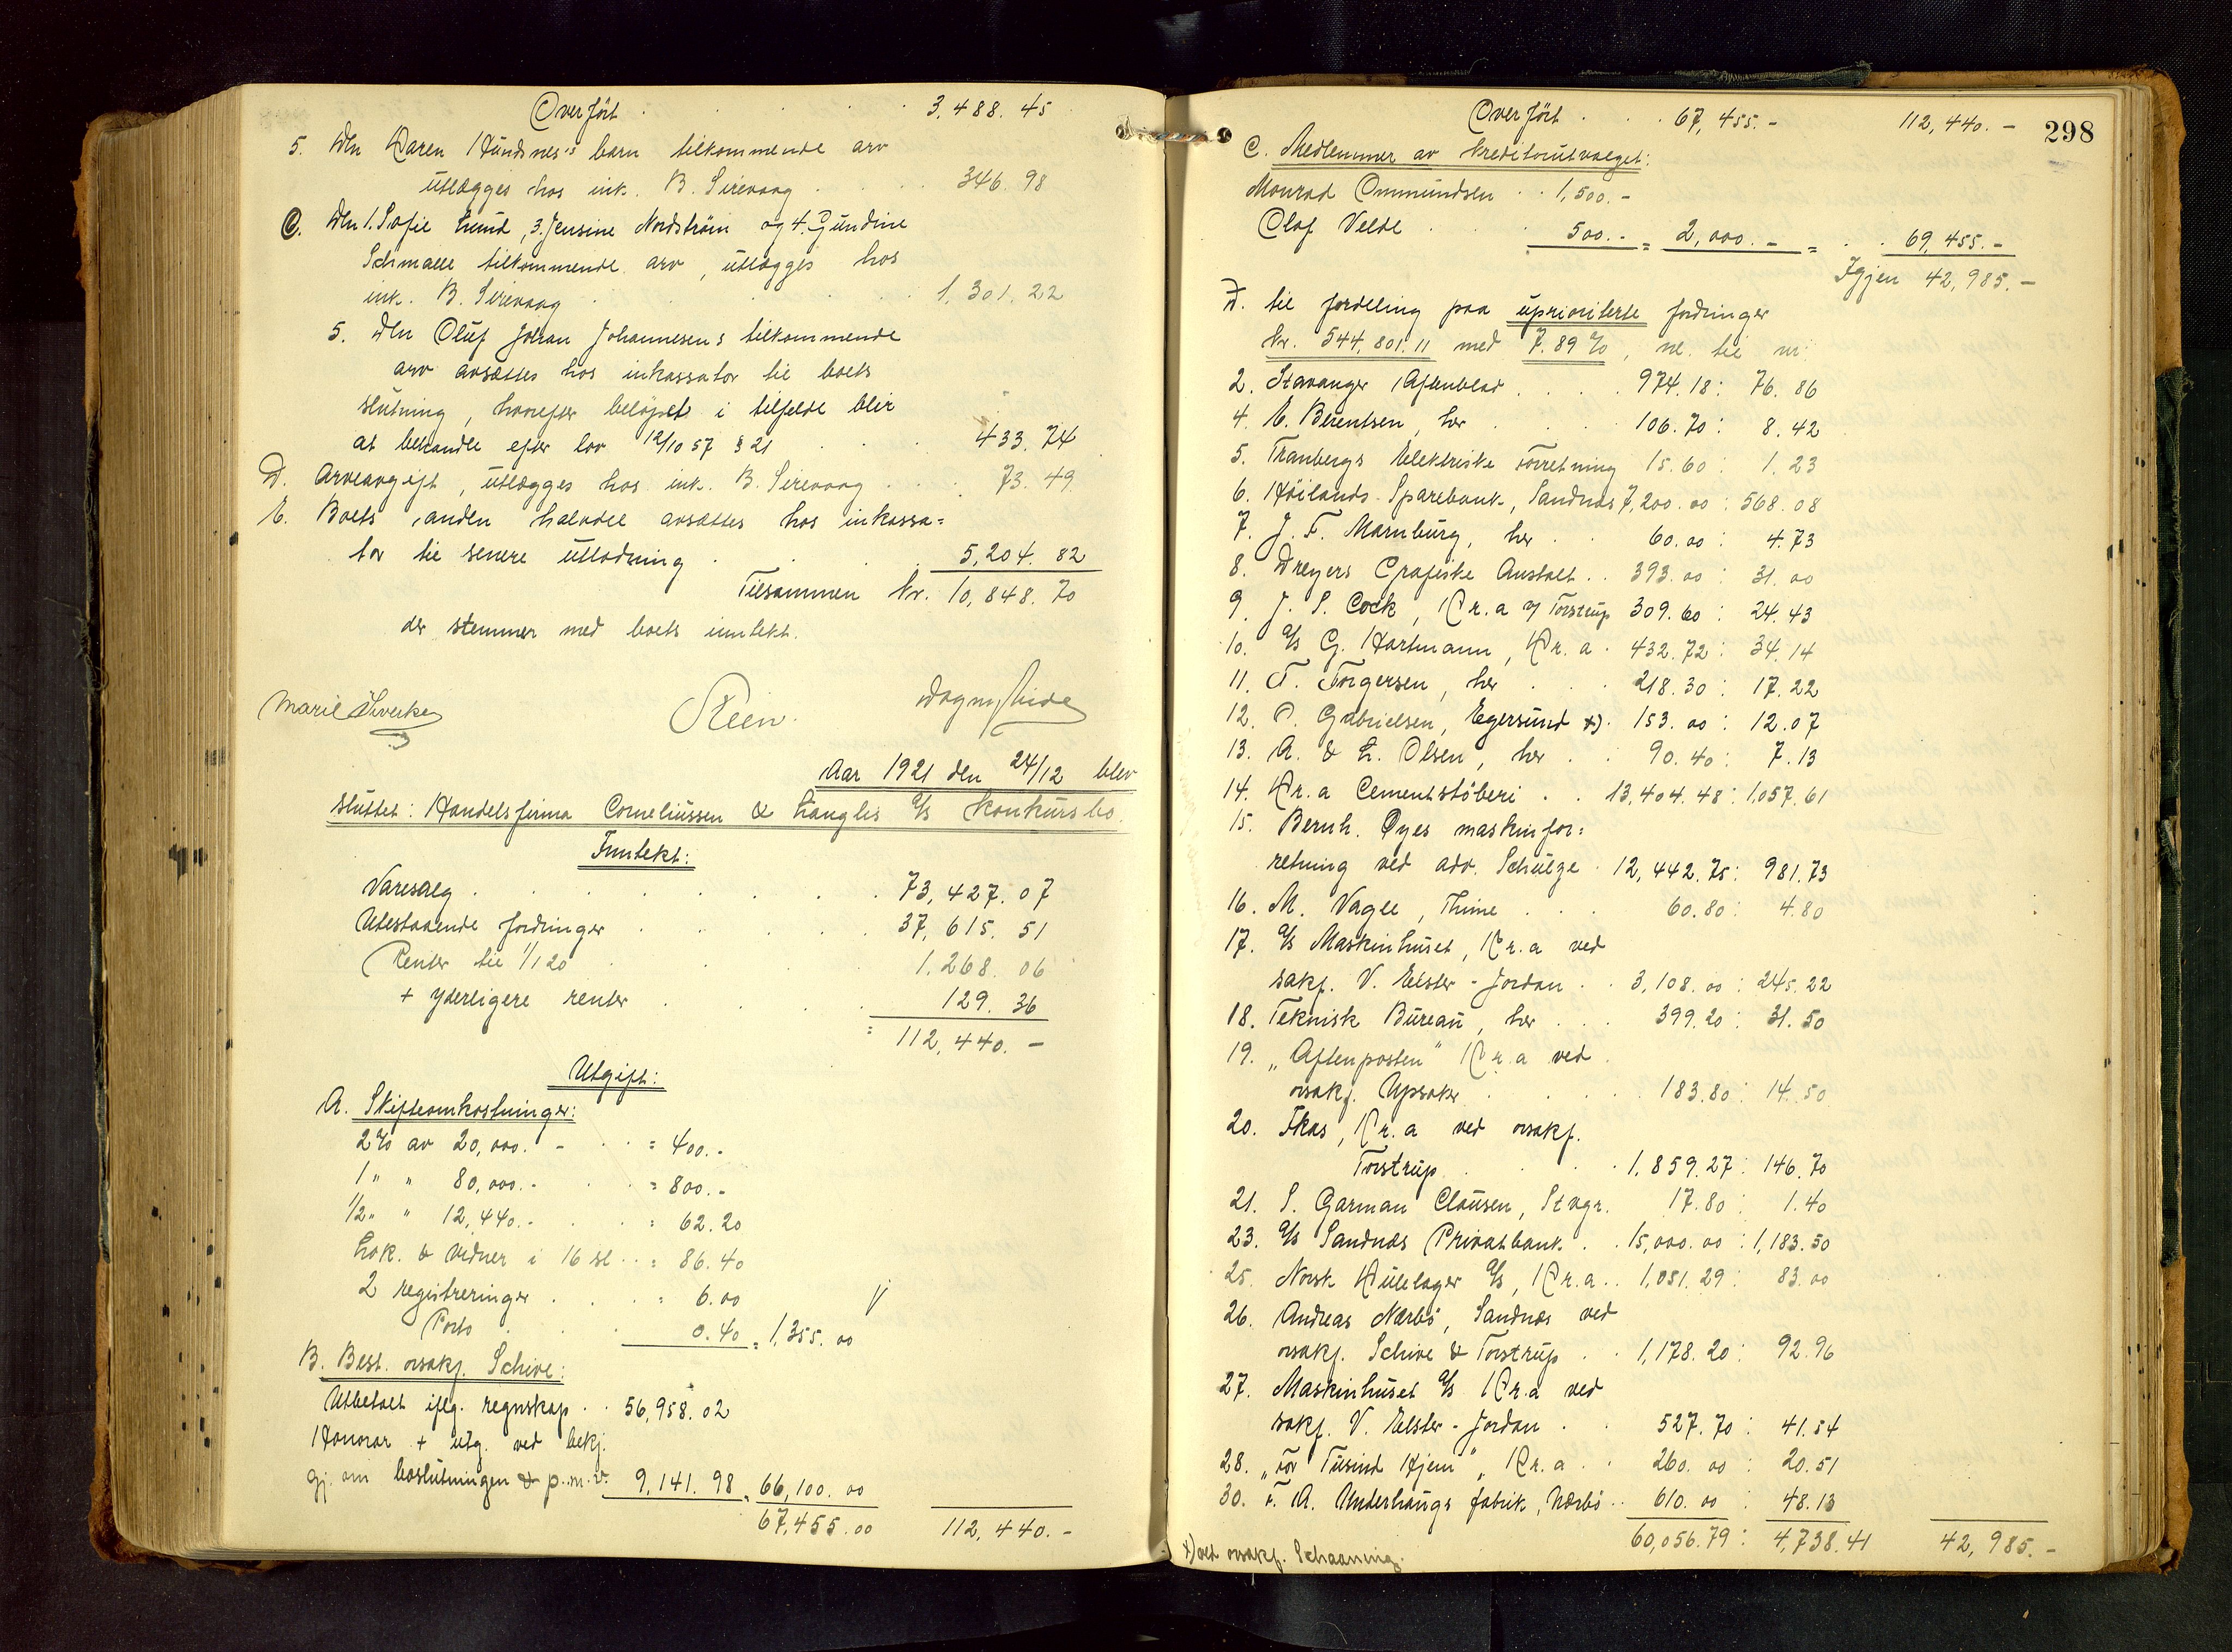 Overfört . . . . . 3,488.45
5. Den Karen Hundsnes's barn tilkommende arv
utlægges hos ink. B. Sirevaag . . . . 346.98
C. Den 1. Sofie Lund, 3. Jensine Nordström og 4. Gundine
Schmalle tilkommende arv, utlægges hos
ink. B. Sirevaag . . . . . 1,301.22
5. Den Oluf Johan Johannesens tilkommende
arv avsættes hos inkassator til boets
slutning, hvorefter belöpet i tilfelde blir
at behandle efter lov 12/10 57 § 21 . . . 433.74
D. Arveavgift, utlægges hos ink. B. Sirevaag . . . 73.49
E. Boets anden halvdel avsættes hos inkassa=
tor til senere utlodning . . . 5,204.82
Tilsammen Kr. 10,848.70
der stemmer med boets inntekt.
Marie Sverke Steen. Dagny Eide
Aar 1921 den 24/12 blev
sluttet: Handelsfirma Corneliussen & Langlis A/S konkursbo.
Inntekt:
Varesalg . . . . . 73,427.07
Utestaaende fordringer . . . . 37,615.51
Renter til 1/1 20 . . . 1,268.06
+ yderligere renter . . . . 129.36
= 112,440.-
Utgift:
A. Skifteomkostninger:
2% av 20,000.- . . = 400.-
1 " " 80,000.- . . = 800.-
1/2 " " 12,440.- . . = 62.20
Lok. & vidner i 16 sl . . = 86.40
2 registreringer . . . . = 6.00
Porto . . . 0.40 = 1,355.00
B. Best. orsakf. Schive:
Utbetalt iflg. regnskap . . 56,958.02
Honorar + utg. ved bekj.
gj. om boslutningen & p.m.v. 9,141.98 = 66,100.00
67,455.00 112,440.-
298
Overfört . . . 67,455.- 112,440.-
C. Medlemmer av kreditorutvalget:
Monrad Ommundsen . . 1,500.-
Olaf Velde . . . 500.- = 2,000.- = . . 69,455.-
Igjen 42,985.-
D. til fordeling paa uprioriterte fordringer
Kr. 544,801.11 med 7.89%, nl. til nr:
2. Stavanger Aftenblad . . . . 974.18: 76.86
4. E. Berentsen, her . . . 106.70: 8.42
5. Tranbergs Elektriske forretning 15.60: 1.23
6. Höilands Sparebank, Sandnes 7,200.00: 568.08
7. J. F. Marnburg, her . . 60.00: 4.73
8. Dreyers Grafiske Anstalt . . 393.00: 31.00
9. J. S. Cock, Kr.a v/ Torstrup 309.60: 24.43
10. A/S G. Hartmann, Kr.a . 432.72: 34.14
11. T. Torgersen, her . . . 218.30: 17.22
12. O. Gabrielsen, Egersund x) . 153.00: 12.07
13. A. & L. Olsen, her . . 90.40: 7.13
14. Kr.a Cementstöberi . . 13,404.48: 1,057.61
15. Bernh. Øyes maskinfor=
retning ved adv. Schulze . 12,442.75: 981.73
16. M. Vagle, Thime . . . 60.80: 4.80
17. A/S Maskinhuset, Kr.a ved
sakf. V. Elster-Jordan . . 3,108.00: 245.22
18. Teknisk Bureau, her . . . 399.20: 31.50
19. "Aftenposten" Kr.a ved
orsakf. Upsaker . . . . 183.80: 14.50
20. Ikas, Kr.a ved orsakf.
Torstrup . . . . 1,859.27: 146.70
21. S. Garman Clausen, Stvgr. 17.80: 1.40
23. A/S Sandnes Privatbank . . 15,000.00: 1,183.50
25. Norsk Kulelager A/S, Kr.a . . 1,051.29: 83.00
26. Andreas Nærbö, Sandnes ved
orsakf. Schive & Torstrup . . 1,178.20: 92.96
27. Maskinhuset A/S Kr.a ved
sakf. V. Elster-Jordan . . 527.70: 41.54
28. "For Tusind Hjem", Kr.a . . 260.00: 20.51
30. F. A. Underhaugs fabrik, Nærbö . . 610.00: 48.13
60,056.79: 4,738.41 42,985.-
x) ved orsakf. Schaanning.